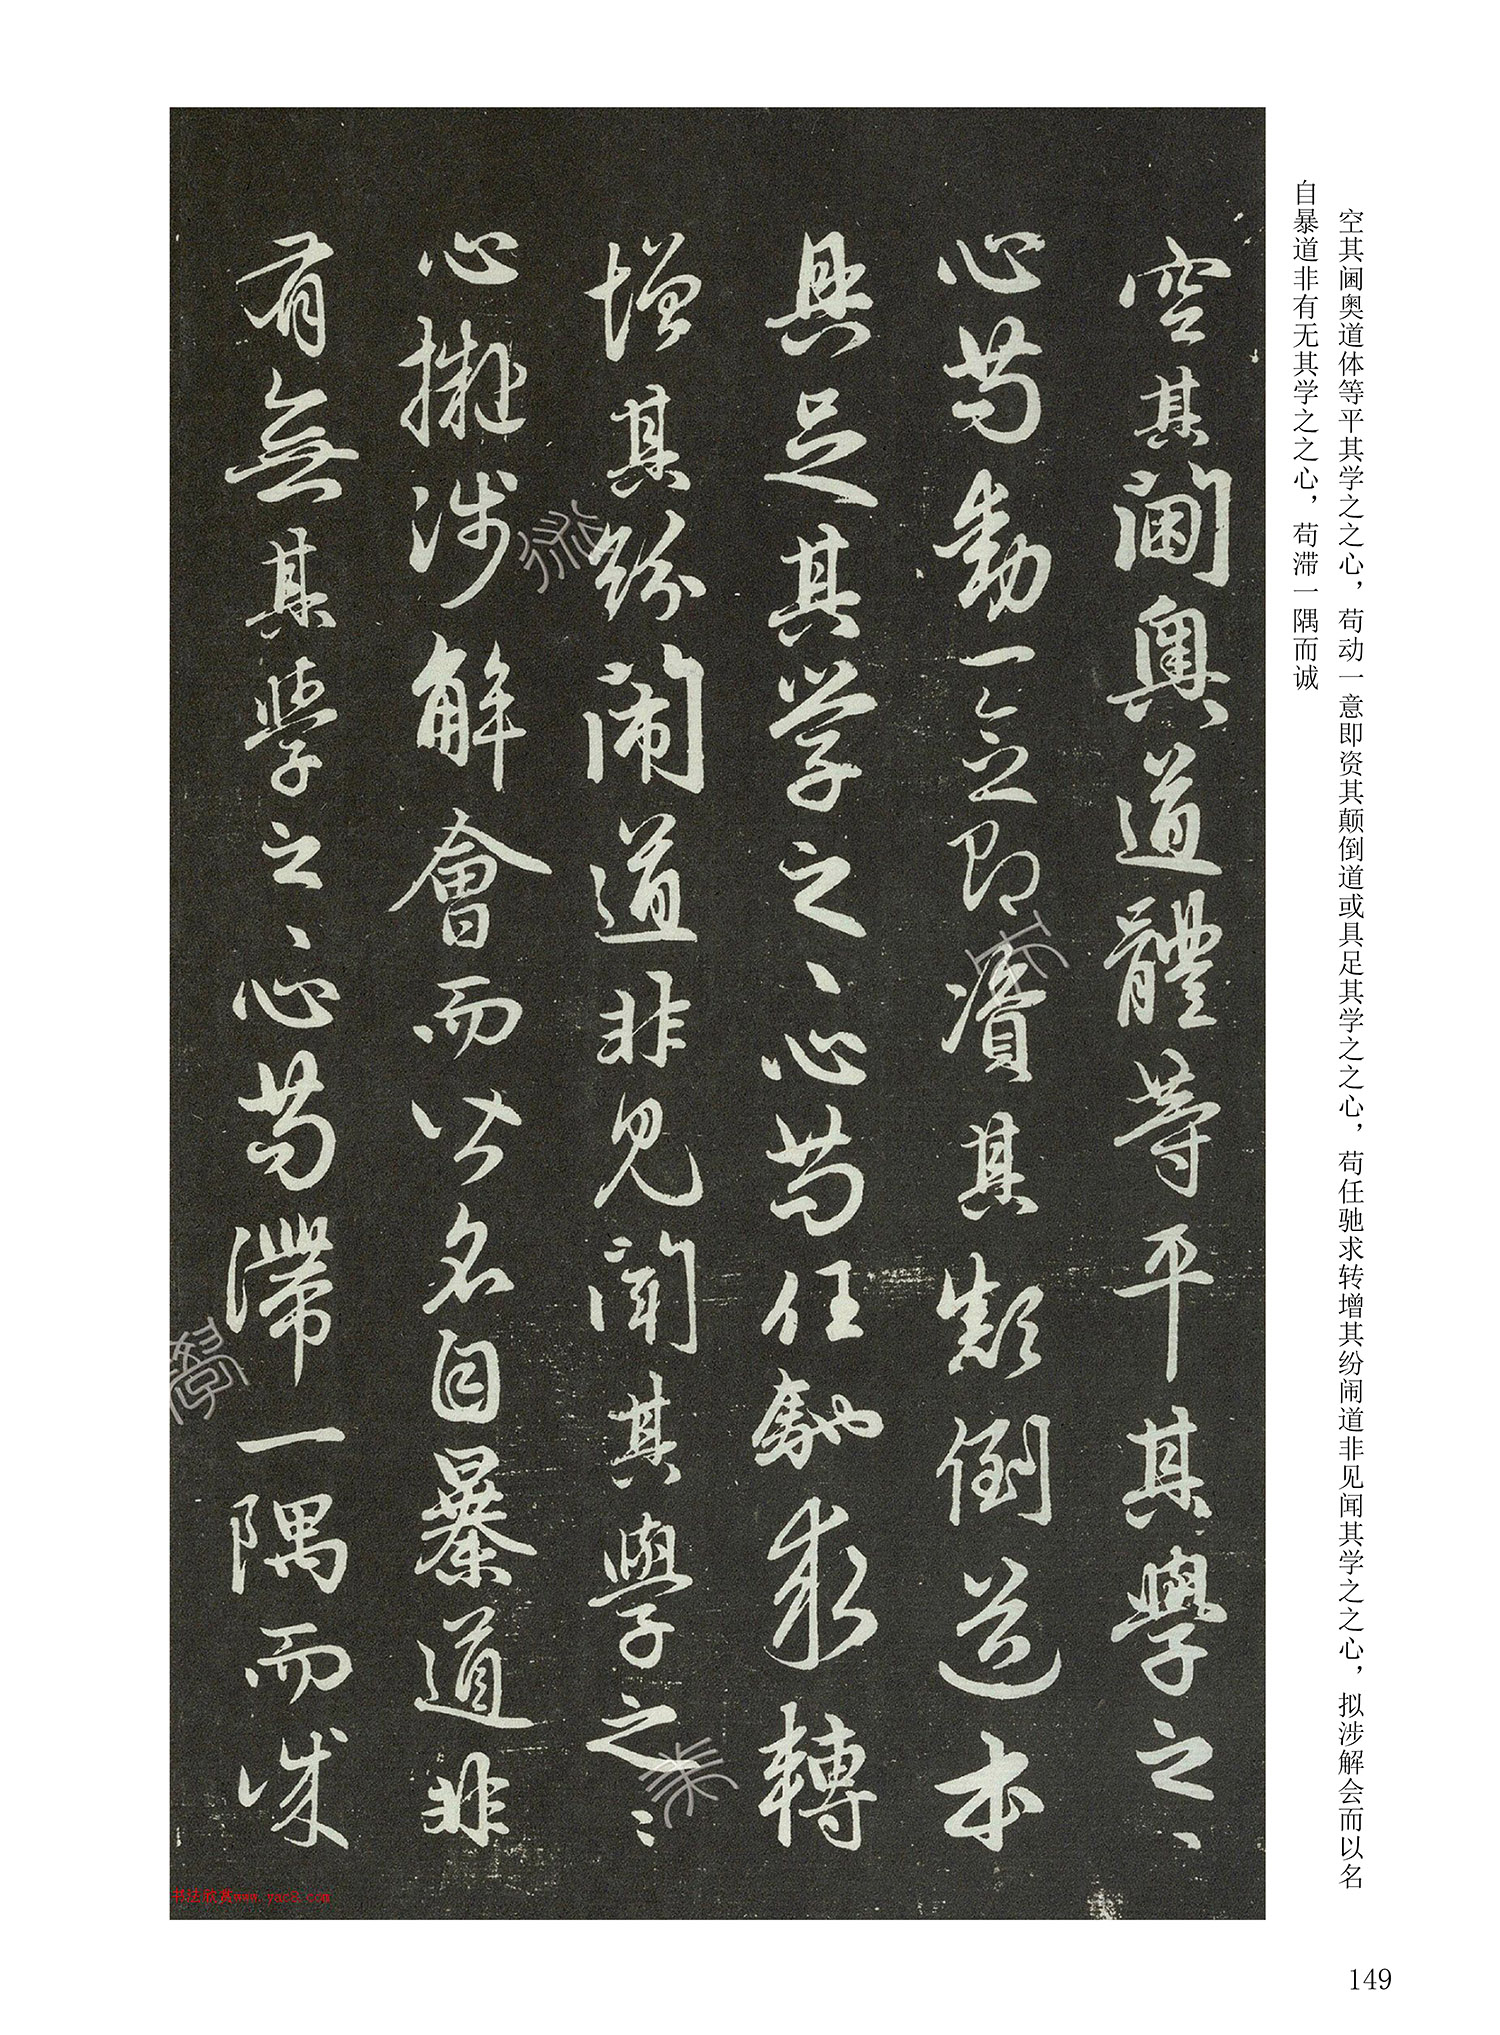 空其阃奥道体等平其学之之心，苟动一意即资其颠倒道或具足其学之之心，苟任驰求转增其纷闹道非见闻其学之之心，拟涉解会而以名
自暴道非有无其学之之心，苟滞一隅而诚
空其閫奧道體等平其學之〻
心苟動一念即資其顛倒道本
具足其学之〻心苟任馳求轉
增其紛閙道非見聞其學之〻
心擬涉解會而以名自暴道非
有無其學之〻心苟滯一隅而誠
书法欣赏www.yac8.com
149